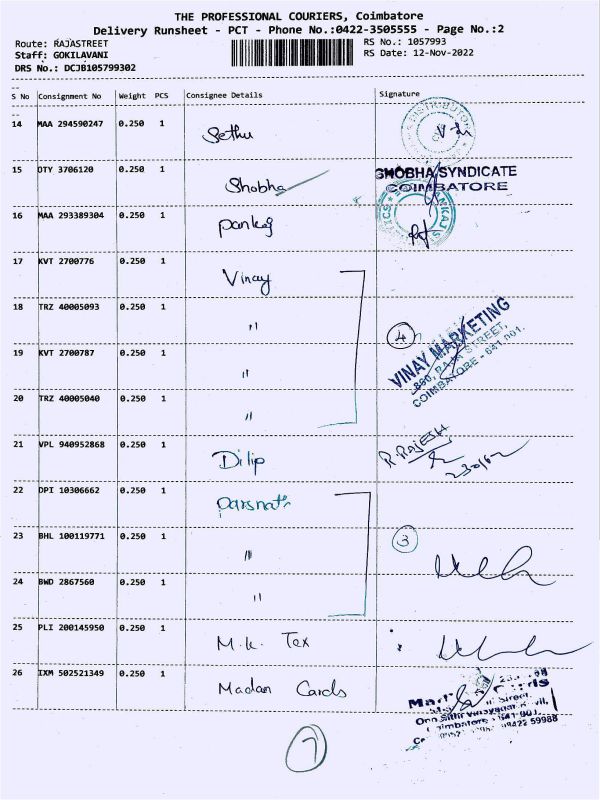 THE PROFESSIONAL COURIERS, Coimbatore
Delivery Runsheet - PCT - Phone No.:0422-3505555 - Page No.:2
Route: RAJASTREET
RS No.: 1057993
Staff: GOKILAVANI
RS Date: 12-Nov-2022
DRS No.: DCJB105799302
S No Consignment No Weight PCS Consignee Details Signature
14 MAA 294590247 0.250 1 Sethu
15 OTY 3706120 0.250 1 Shobha SHOBHA SYNDICATE
COIMBATORE
16 MAA 293389304 0.250 1 Pankaj
17 KVT 2700776 0.250 1 Vinay
18 TRZ 40005093 0.250 1 "
4 VINAY MARKETING
880, RAJA STREET,
COIMBATORE - 641 001.
19 KVT 2700787 0.250 1 "
20 TRZ 40005040 0.250 1 "
21 VPL 940952868 0.250 1 Dilip R. RAJESH
22 DPI 10306662 0.250 1 Parsnath
23 BHL 100119771 0.250 1 " 3
24 BWD 2867560 0.250 1 "
25 PLI 200145950 0.250 1 M.K. Tex
26 IXM 502521349 0.250 1 Madan Cards
7